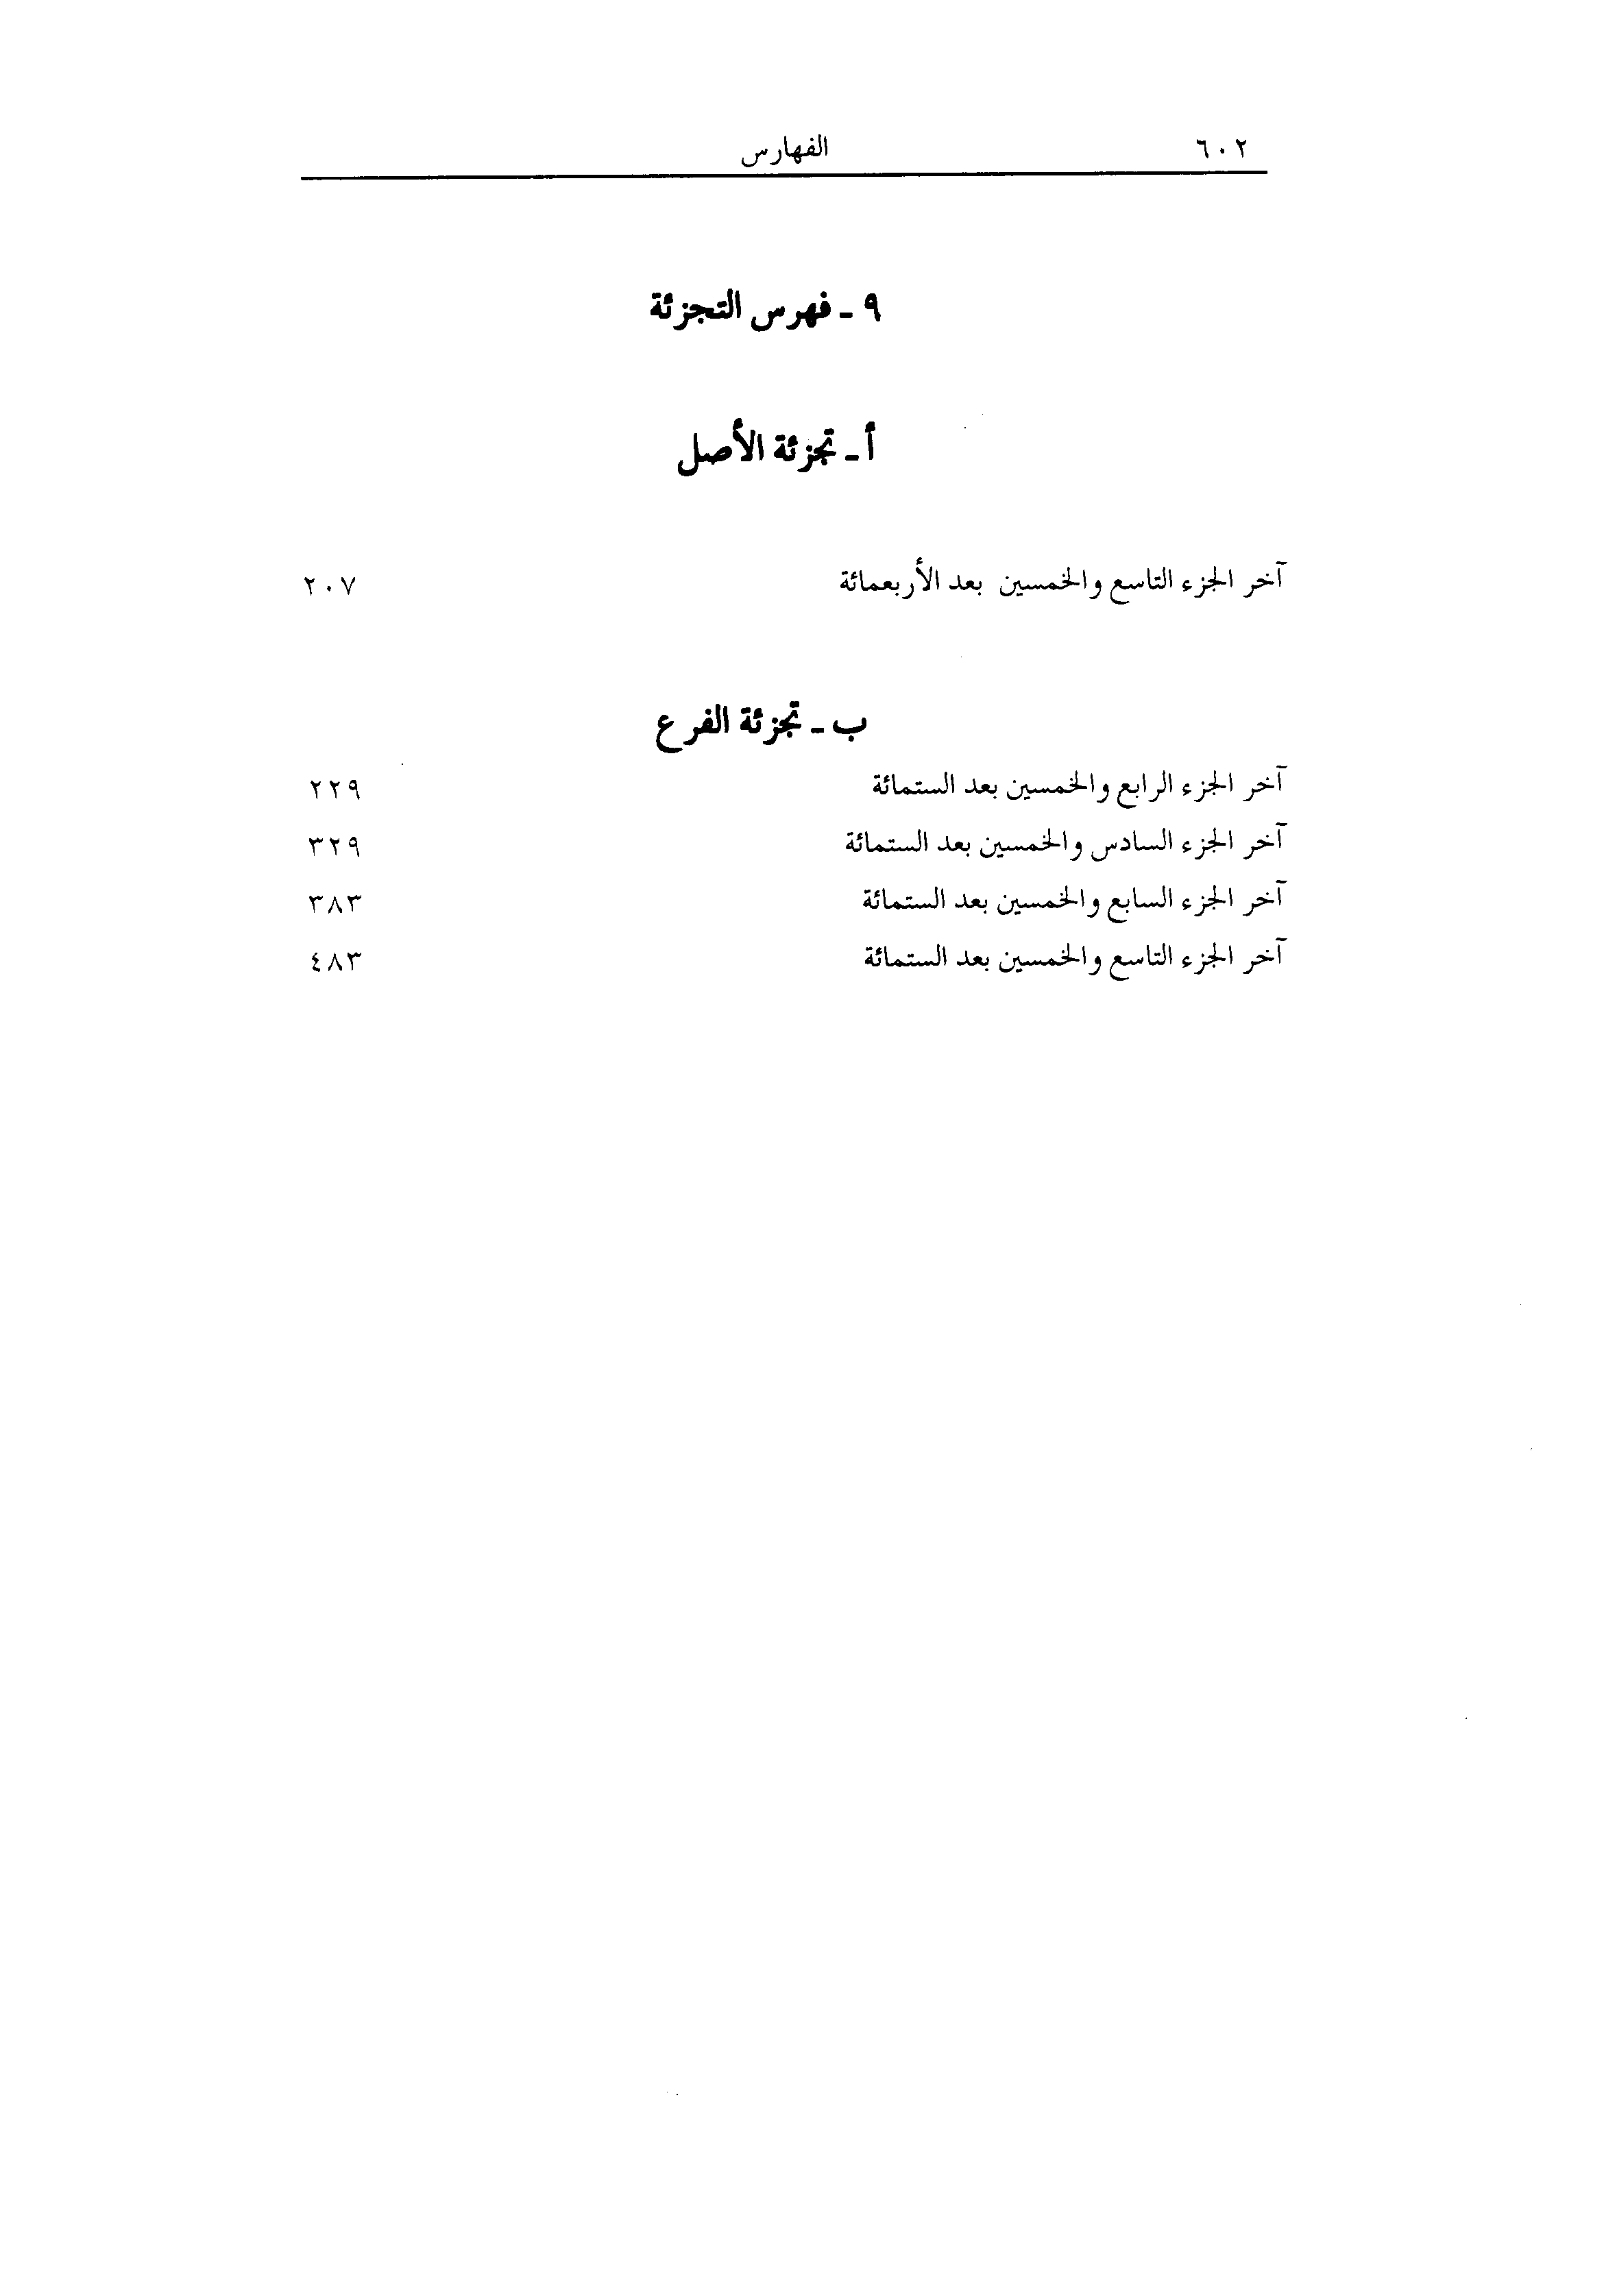 ٦٠٢ الفهارس
٩ ـ فهرس التجزئة
أ ـ تجزئة الأصل
آخر الجزء التاسع والخمسين بعد الأربعمائة ٢٠٧
ب ـ تجزئة الفرع
آخر الجزء الرابع والخمسين بعد الستمائة ٢٢٩
آخر الجزء السادس والخمسين بعد الستمائة ٣٢٩
آخر الجزء السابع والخمسين بعد الستمائة ٣٨٣
آخر الجزء التاسع والخمسين بعد الستمائة ٤٨٣